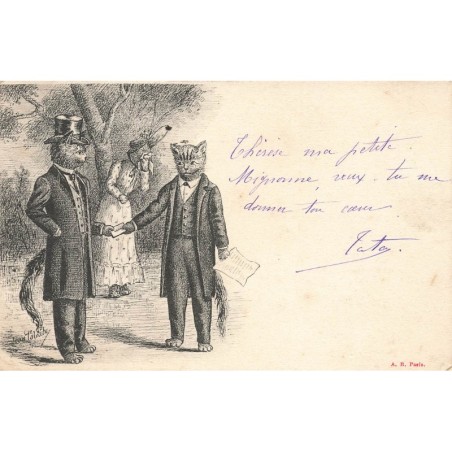 Thérèse ma petite
Mignonne, veux-tu me
donner ton cœur
A. R. Paris.